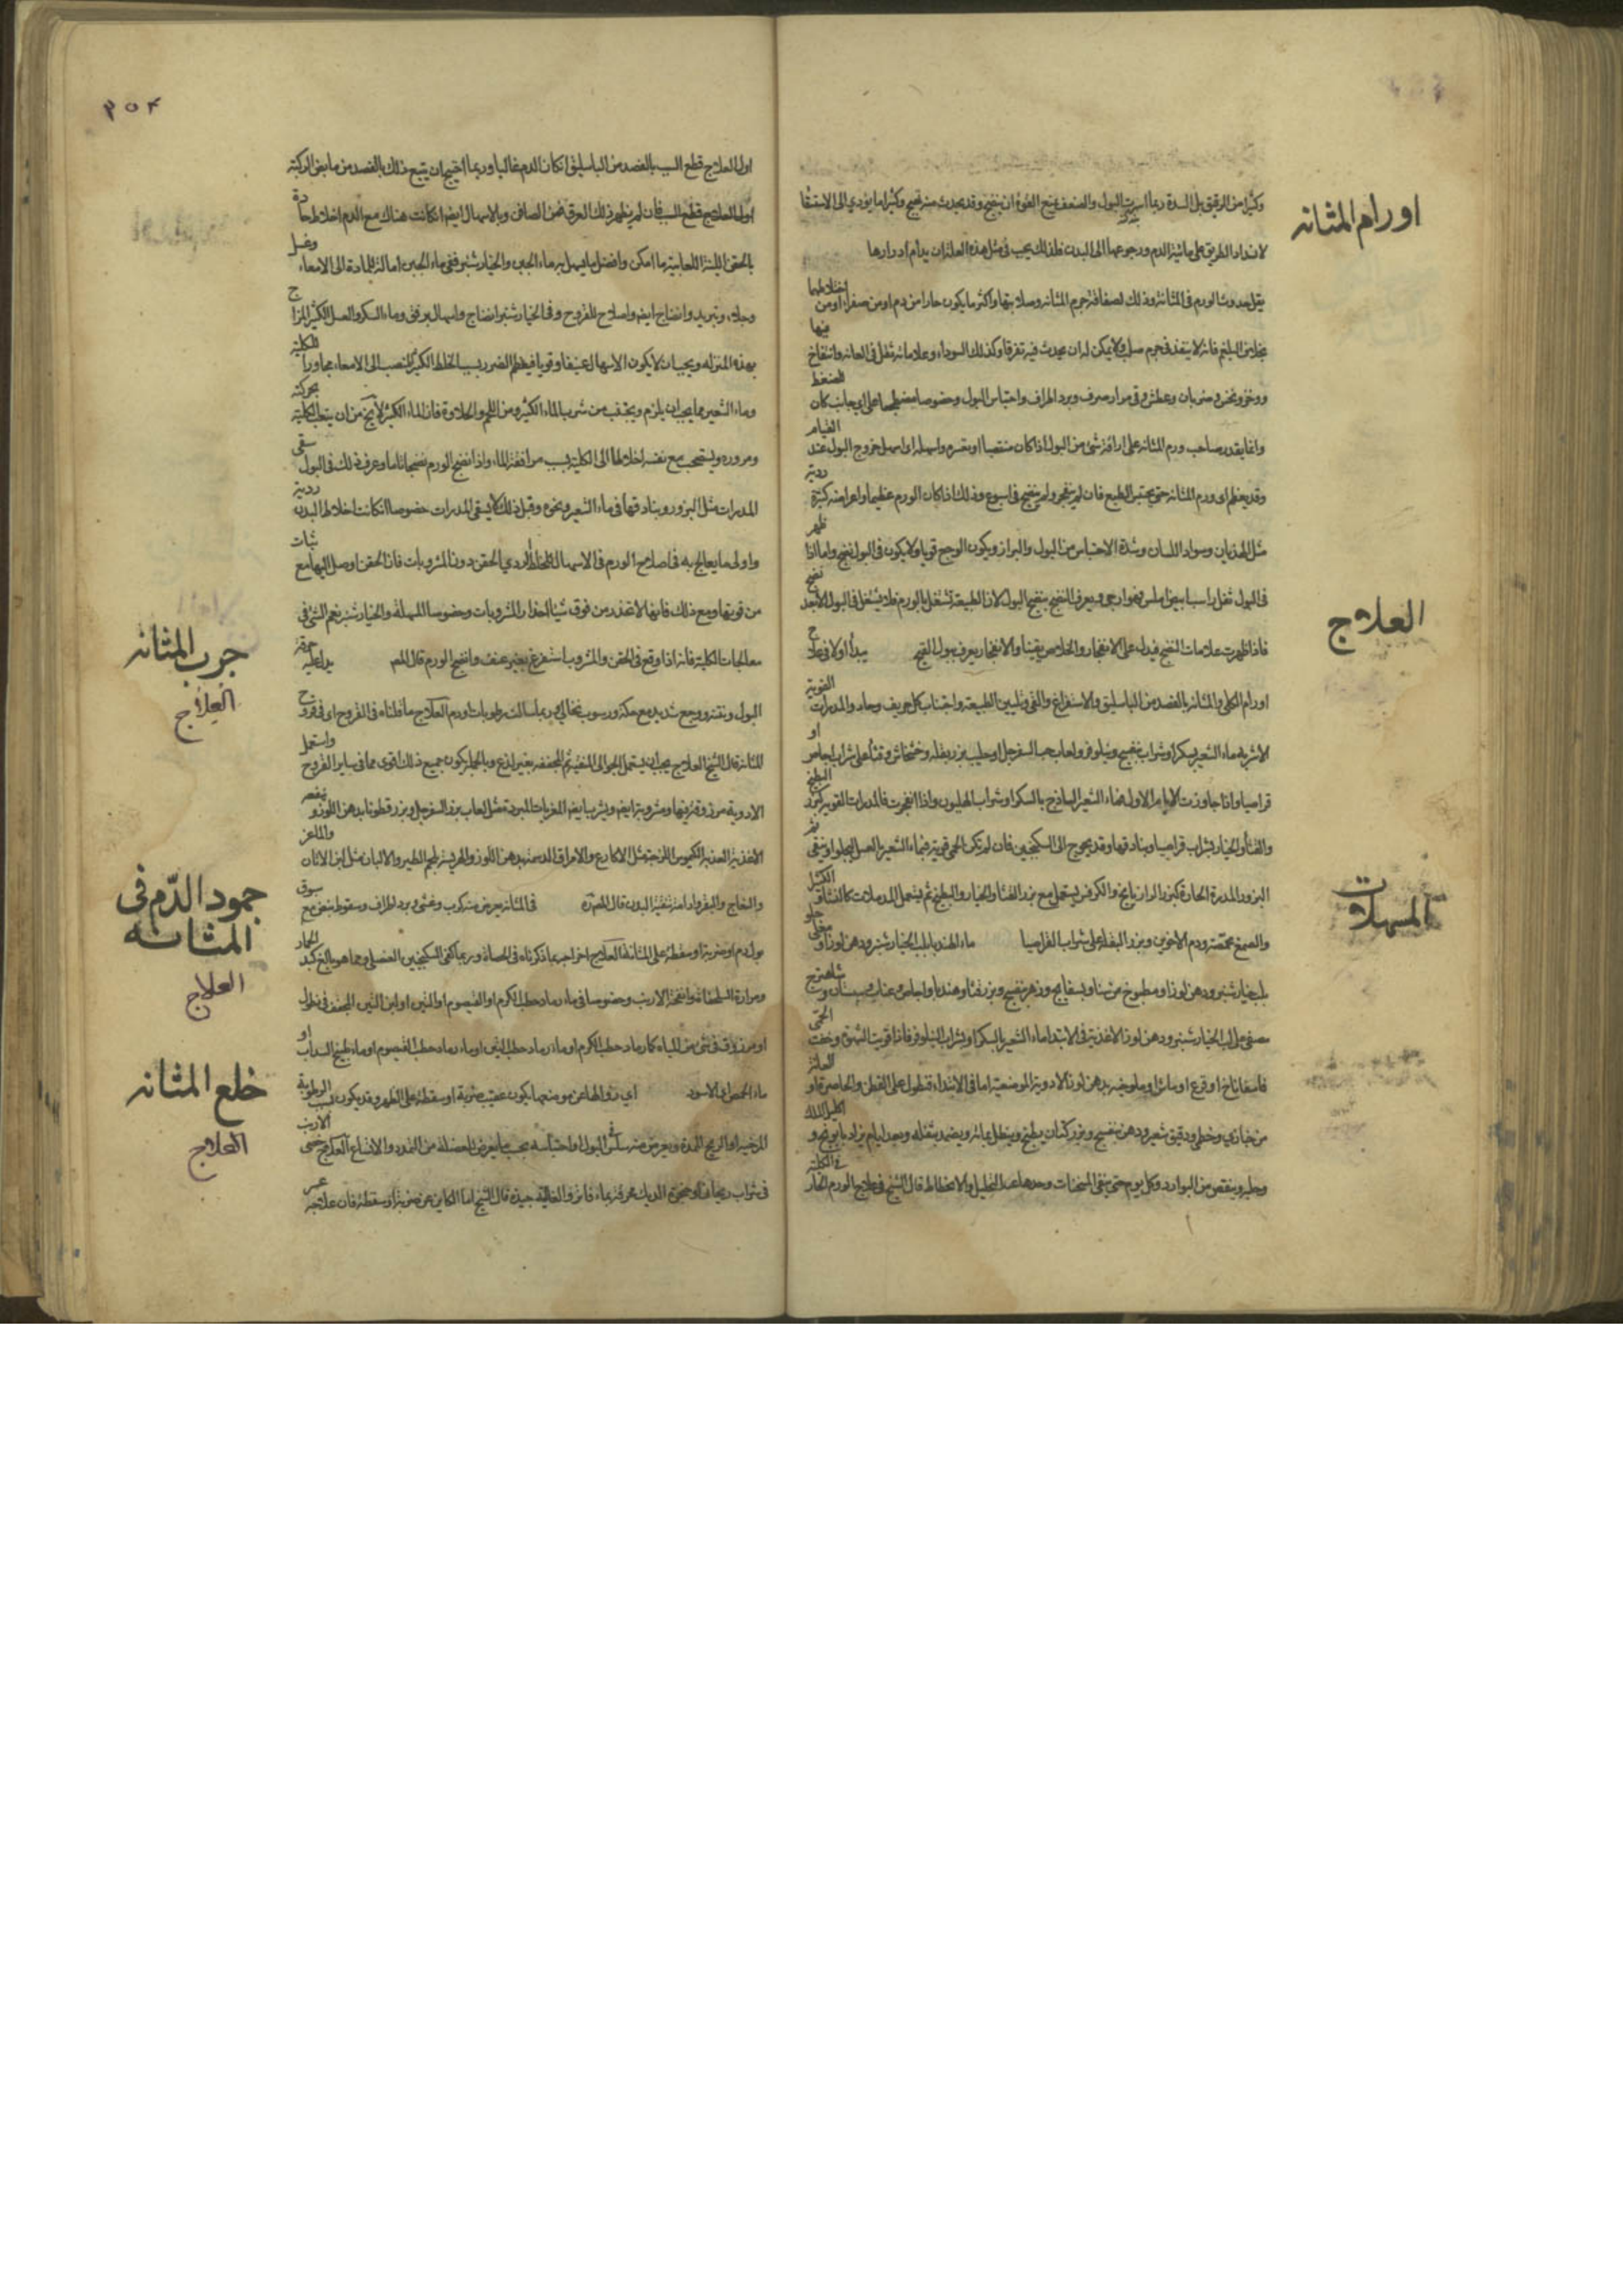 اورام المثانه
وكثيرا من الرقيق بل السدة ربما اسرت البول والضعف يمنع القوة ان ينفتح وقد يحدث منه قيح وكثيرا ما يؤدي الى الاستسقا
لانسداد الطريق على مائية الدم ورجوعها الى البدن فلذلك يجب في مثل هذه العلة ان يدام ادرارها
يقل حدوث الورم في المثانة وذلك لصفاقة جرم المثانه وصلابتها واكثر ما يكون حارا من دم او من صفراء او من اختلاطهما
بخلاف البلغم فانه لا ينفذ في جرم صلب ولا يمكن له ان يحدث فيه تفرقا وكذلك السوداء وعلاماته ثقل في العانه وانتفاخ فيها
ووخز ونخس وضربان وعطش وقي مرار صرف وبرد اطراف واحتباس البول وخصوصا مضطجعا على اي جانب كان الضغط
وانما يقدر صاحب ورم المثانه على اراقة شي من البول اذا كان منتصبا وسهل خروج البول عند القيام
وقد يعظم ورم المثانه حتى يحتبس الطبع فان لم ينفجر ولم ينضج في اسبوع وذلك اذا كان الورم عظيما واعراضه كثيرة ردية
مثل الهذيان وسواد اللسان وشدة الاحتباس من البول والبراز ويكون الوجع قويا ولا يكون في البول نضج واما اذا ظهر
في البول ثفل راسب ابيض املس فهو ارجى ويعرف النضج بنضج البول لان الطبيعة تشتغل بالورم نضج
العلاج
فاذا ظهرت علامات النضج فيدل على الانفجار والخلاص يقينا والانفجار يعرف ببول القيح يبدأ اولا في علاج
اورام الكلى والمثانه بالفصد من الباسليق والاستفراغ والقي وتليين الطبيعة واجتناب كل حريف وحاد والمدرات القوية
الاشربه ماء الشعير بسكر او شراب بنفسج ونيلوفر ولعاب حب السفرجل او حليب بزر بقله وخشخاش وقثا على شراب اجاص او
قراصيا واذا جاوزت الايام الاول فماء الشعير الساذج بالسكر او شراب الهليون واذا انفجرت فالمدرات القوية كبزر البطيخ
والقثا والخيار بشراب قراصيا وبنادقها وقد يحوج الى السكنجبين فان لم تكن الحمى قوية فماء الشعير بالعسل
المسهلات
البزور المدرة الحارة كبزر الرازيانج والكرفس يستعمل مع بزر القثا والخيار والبطيخ ثم يستعمل المدملات كالنشا و
والصمغ محمصة ودم الاخوين وبزر البقلة على شراب القراصيا ماء الهندبا بلب الخيار شنبر ودهن لوز او مغلى
بلب خيار شنبر ودهن لوز او مطبوخ من سنا وبسفايج وزهر بنفسج وبزر قثا وهندبا واجاص وعناب وسبستان و شاهترج
مصفى على لب الخيار شنبر ودهن لوز الاغذية في الابتدا ماء الشعير بالسكر او بشراب النيلوفر فاذا قويت الشهوة وخفت الحمى
فاسفاناخ او قرع او ماش او ملوخيه بدهن لوز الادوية الموضعية اما في الابتداء تنطول على القطن والخاصرة او العانة
من خبازي وخطمي ودقيق شعير ودهن بنفسج وبزر كتان يطبخ وينطل بمائه ويضمد بثفله وبعد ايام يزاد بابونج و اكليل الملك
وحلبه وينقص من البوارد وكل يوم حتى يبقى المسخنات وحدها عند التحليل والانحطاط قال الشيخ في علاج الورم الحار في الكلية
٢٥٤
اول العلاج قطع السبب بالفصد من الباسليق ان كان الدم غالبا وربما احتيج ان يتبع ذلك بالفصد من مابض الركبة
اول العلاج قطع السبب فان لم يظهر ذلك العرق فمن الصافن وبالاسهال ايضا ان كانت هناك مع الدم اخلاط حادة
بالحقن اللينة اللعابية ما امكن وافضل ما يسهل به ماء الجبن والخيار شنبر ففي ماء الجبن امالة للمادة الى الامعاء وغسل
وجلاء وتبريد وانضاج ايضا واصلاح للقروح وفي الخيار شنبر انضاج واسهال برفق وماء السكر والعسل الكثير المزاج
بهذه المنزله ويجب ان لا يكون الاسهال عنيفا وقويا فيعظم الضرر بسبب الخلط الكثير المنصب الى الامعاء مجاورا للكلية
وماء الشعير مما يجب ان يلزم ويجتنب من شرب الماء الكثير ومن اللحم والحلاوة فان الماء الكثير لا يخ من ان يتعب الكلية بحركته
ومروره ويستصحب مع نفسه اخلاطا الى الكلية بسبب مرافقة الماء واذا نضج الورم نضجا تاما وعرف ذلك في البول سقي
المدرات مثل البزور وبنادقها في ماء الشعير ونحوه وقبل ذلك لا يسقى المدرات خصوصا ان كانت اخلاط البدن ردية
واولى ما يعالج به في اصلاح الورم في الاسهال للخلط الردي الحقن دون المشروبات فان الحقن اوصل اليها مع ثبات
من قوتها ومع ذلك فانها لا تحدر من فوق شيئا انحدار المشروبات وخصوصا المسهلة والخيار شنبر نعم الشي في
جرب المثانه
معالجات الكلية فانه اذا وقع في الحقن والمشروبات استفرغ بغير عنف وانضج الورم قال المص يدل عليه حرقة
العلاج
البول ونتنه ووجع شديد مع حكة ورسوب نخالي وربما سالت رطوبات ودم العلاج ما قلناه في القروح اي في قروح
المثانة قال الشيخ العلاج يجب ان يستعمل الجوالي المنقية ثم المجففه بغير لذع وبالجمله يكون جميع ذلك اقوى مما في ساير القروح واستعمل
الادوية مزروقة فيها ومشروبة ايضا ويشرب ايضا المغريات المبردة مثل لعاب بزر السفرجل وبزر قطونا بدهن اللوز و
الاغذية العذبة الكيموس اللزجة مثل الاكارع والامراق الدسمة بدهن اللوز والهريسة بلحم الطير والالبان مثل لبن الاتان والماعز
جمود الدم في المثانه
والنعاج والبقر وادامة تنقية البدن قال المص في المثانة يعرض منه كرب وغشي وبرد اطراف وسقوط نبض مع سبوق
العلاج
بول دم او ضربة او سقطة على المثانة العلاج اخراجه بما ذكرناه في الحصاة وربما كفى السكنجبين العنصلي ومما هو بالغ كبد الحمار
ومرارة السلحفاة وانفحة الارنب وخصوصا في ماء رماد حطب الكرم او القيصوم او التين او لبن التين المجفف في خل
او مزروقة في شي من المياه كماء رماد حطب الكرم او ماء رماد حطب التين او ماء رماد حطب القيصوم او ماء طبيخ السداب او
خلع المثانه
ماء الحمص الاسود اي زوالها عن موضعها يكون عقيب ضربة او سقطة على الظهر وقد يكون بسبب الرطوبة
العلاج
المرخية او الريح الممددة ويعرض منه سلس البول او احتباسه بحسب ما يعرض للعضلة من التمدد والاتساع العلاج خصى الارنب
في شراب ريحاني او حنجرة الديك محرقة بماء فاتر والغالية جيدة قال الشيخ اما الكاين عن ضربة او سقطة فان علاجه عسر